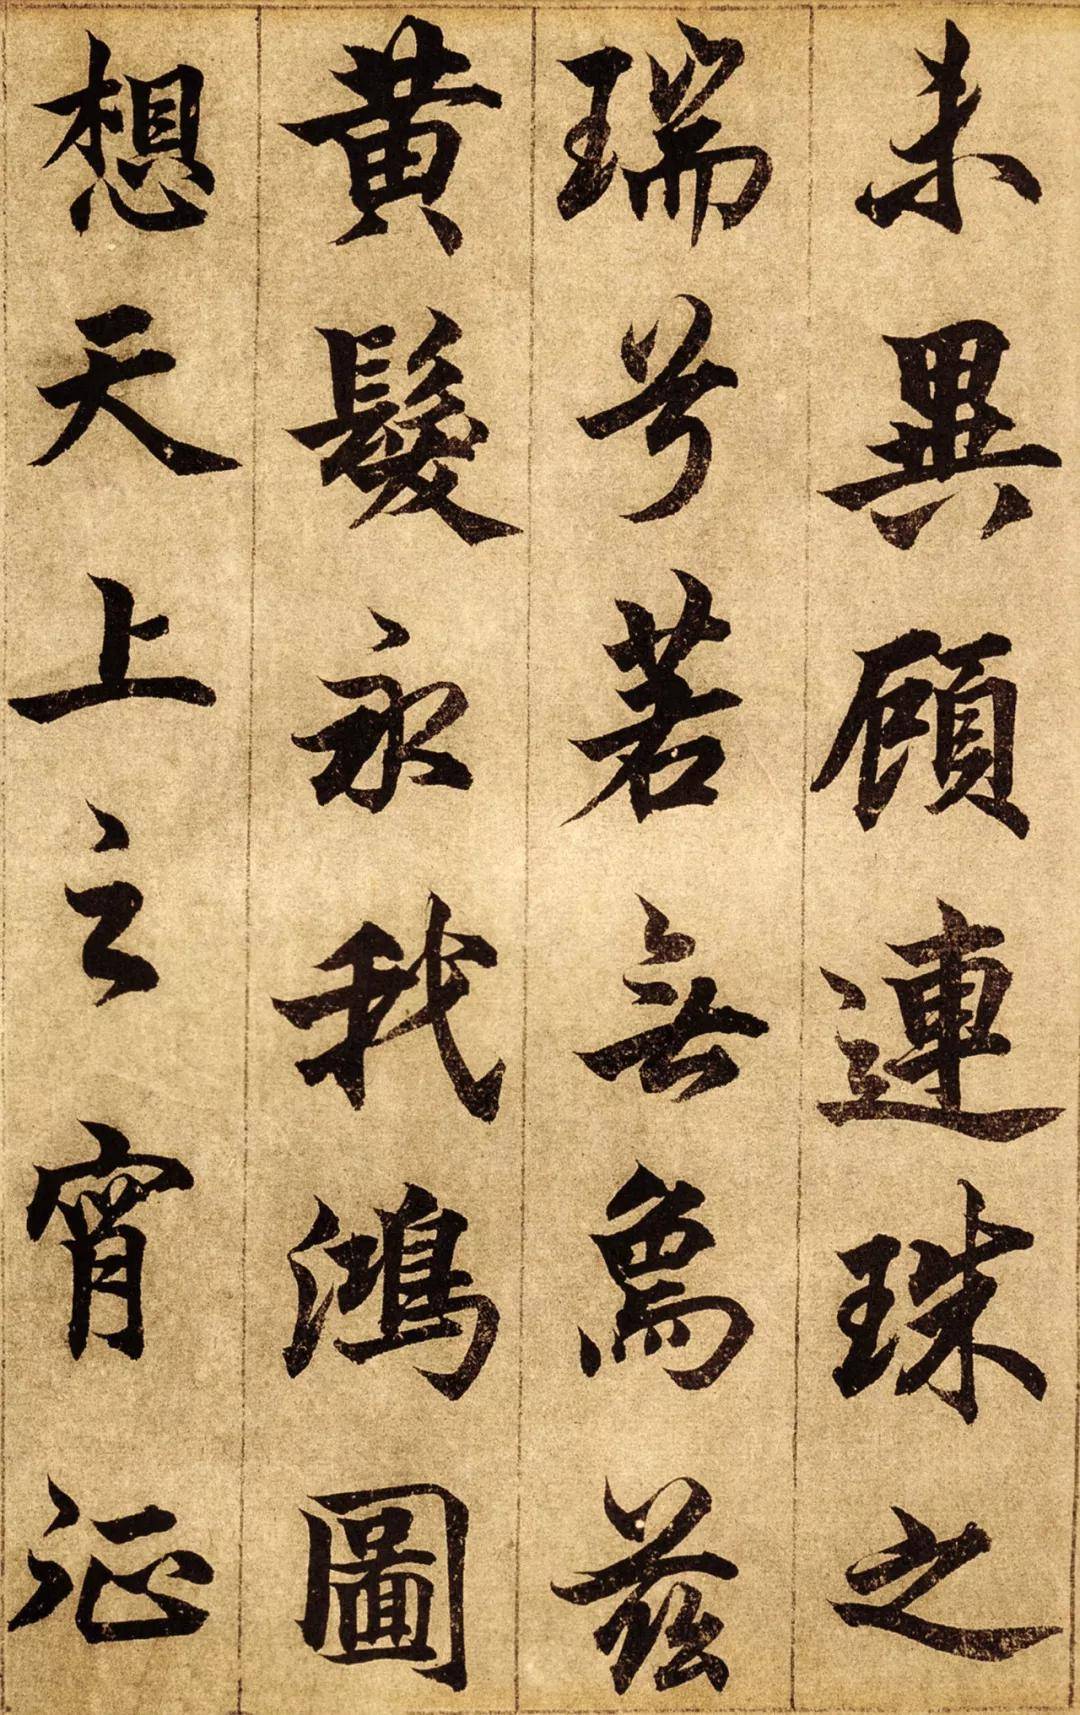 未異顧連珠之
瑞兮若無為茲
黃髮永我鴻圖
想天上之宵征